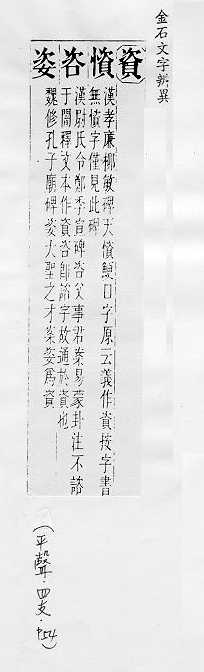 金石文字辨異
資
憤 漢孝廉柳敏碑天憤鯁口字原云義作資按字書
無憤字僅見此碑
咨 漢尉氏令鄭季宣碑咨父事君案易蒙卦注不諮
于闇釋文本作資咨卽諮字故通於資也
姿 魏修孔子廟碑姿大聖之才案姿爲資
(平聲·四支·P54)